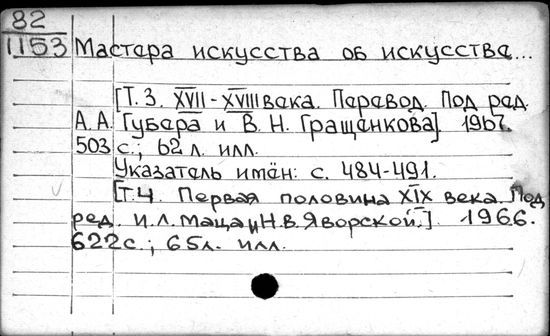 82
1153
Мастера искусства об искусстве...
[Т. 3. XVII - XVIII века. Перевод. Под ред.
А.А. Губера и В. Н. Гращенкова]. 1967.
503 с.; 62 л. илл.
Указатель имен: с. 484-491.
[Т.4. Первая половина XIX века. Под
ред. И.Л. Маца и Н.В. Яворской.] 1966.
622 с.; 65 л. илл.